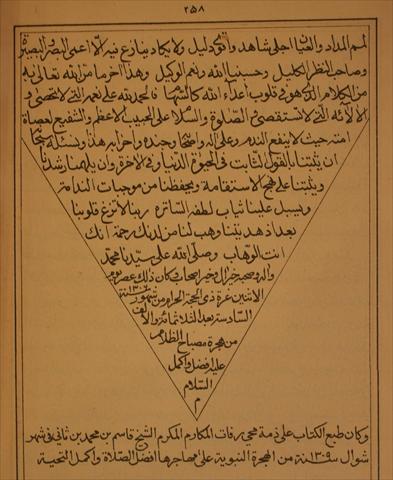 ٢٥٨
لهم المداد والفتيان اجلى شاهد واقوى دليل ولا يكاد ينازع فيه الا اعمى البصر والبصيرة
وصاحب النظر الكليل وحسبنا الله ونعم الوكيل وهذا آخر ما من الله تعالى به
من الكلام الذى هو فى قلوب أعداء الله كالسهام فالحمد لله على نعمه التى لا تحصى و
آلائه التى لا تستقصى والصلوة والسلام على الحبيب الاعظم والشفيع لعصاة
امته حيث لا ينفع الندم وعلى آله واصحابه وجنده واحزابه هذا ونسئله سبحانه
ان يثبتنا بالقول الثابت فى الحيوة الدنيا وفى الاخرة وان يلهمنا رشدنا
ويثبتنا على نهج الاستقامة ويحفظنا من موجبات الندامة
ويسبل علينا ثياب لطفه الساترة ربنا لا تزغ قلوبنا
بعد اذ هديتنا وهب لنا من لدنك رحمة انك
انت الوهاب وصلى الله على سيدنا محمد
وآله وصحبه خير ال وخير اصحاب وكان ذالك عصر يوم
الاثنين غرة ذى الحجة الحرام من شهور سنة ١٣٠٦
السادسة بعد الثلاثمائة والالف
من هجرة مصباح الظلام
عليه افضل واكمل
السلام
م
وكان طبع الكتاب على ذمة محبى رفات المكارم المكرم الشيخ قاسم بن محمد بن ثانى فى شهر
شوال سنة ١٣٠٩ من الهجرة النبوية على مهاجرها افضل الصلاة وأكمل التحية